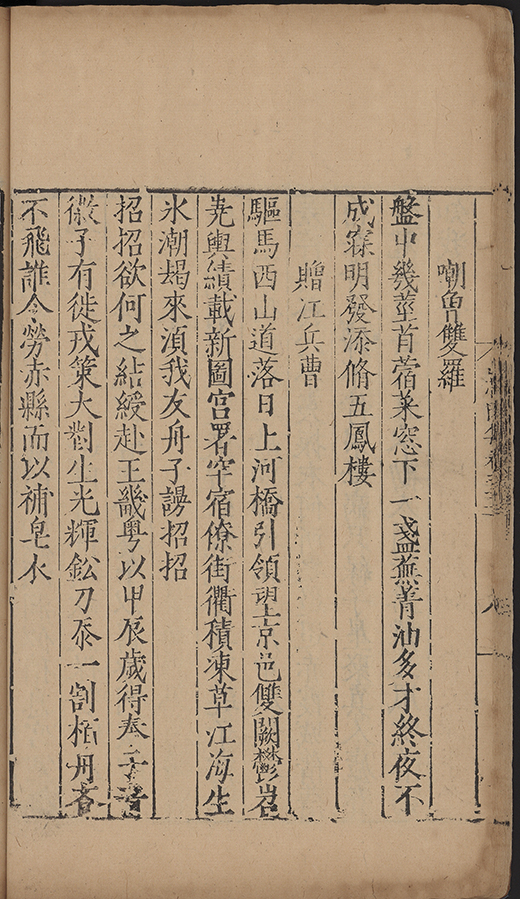 嘲魯雙羅
盤中幾莖苜蓿菜窓下一盞蕪菁油多才終夜不
成寐明發添脩五鳳樓
贈江兵曹
驅馬西山道落日上河橋引領望京邑雙闕鬱岧
尭輿績載新圖宫署罕宿僚街衢積凍草江海生
氷潮朅来湏我友舟子謾招招
招招欲何之結綬赴王畿粤以甲辰歲得奉
徽子有徙戎策大對生光輝鈆刀忝一割栢舟吝
不飛誰令勞赤縣而以補皂衣